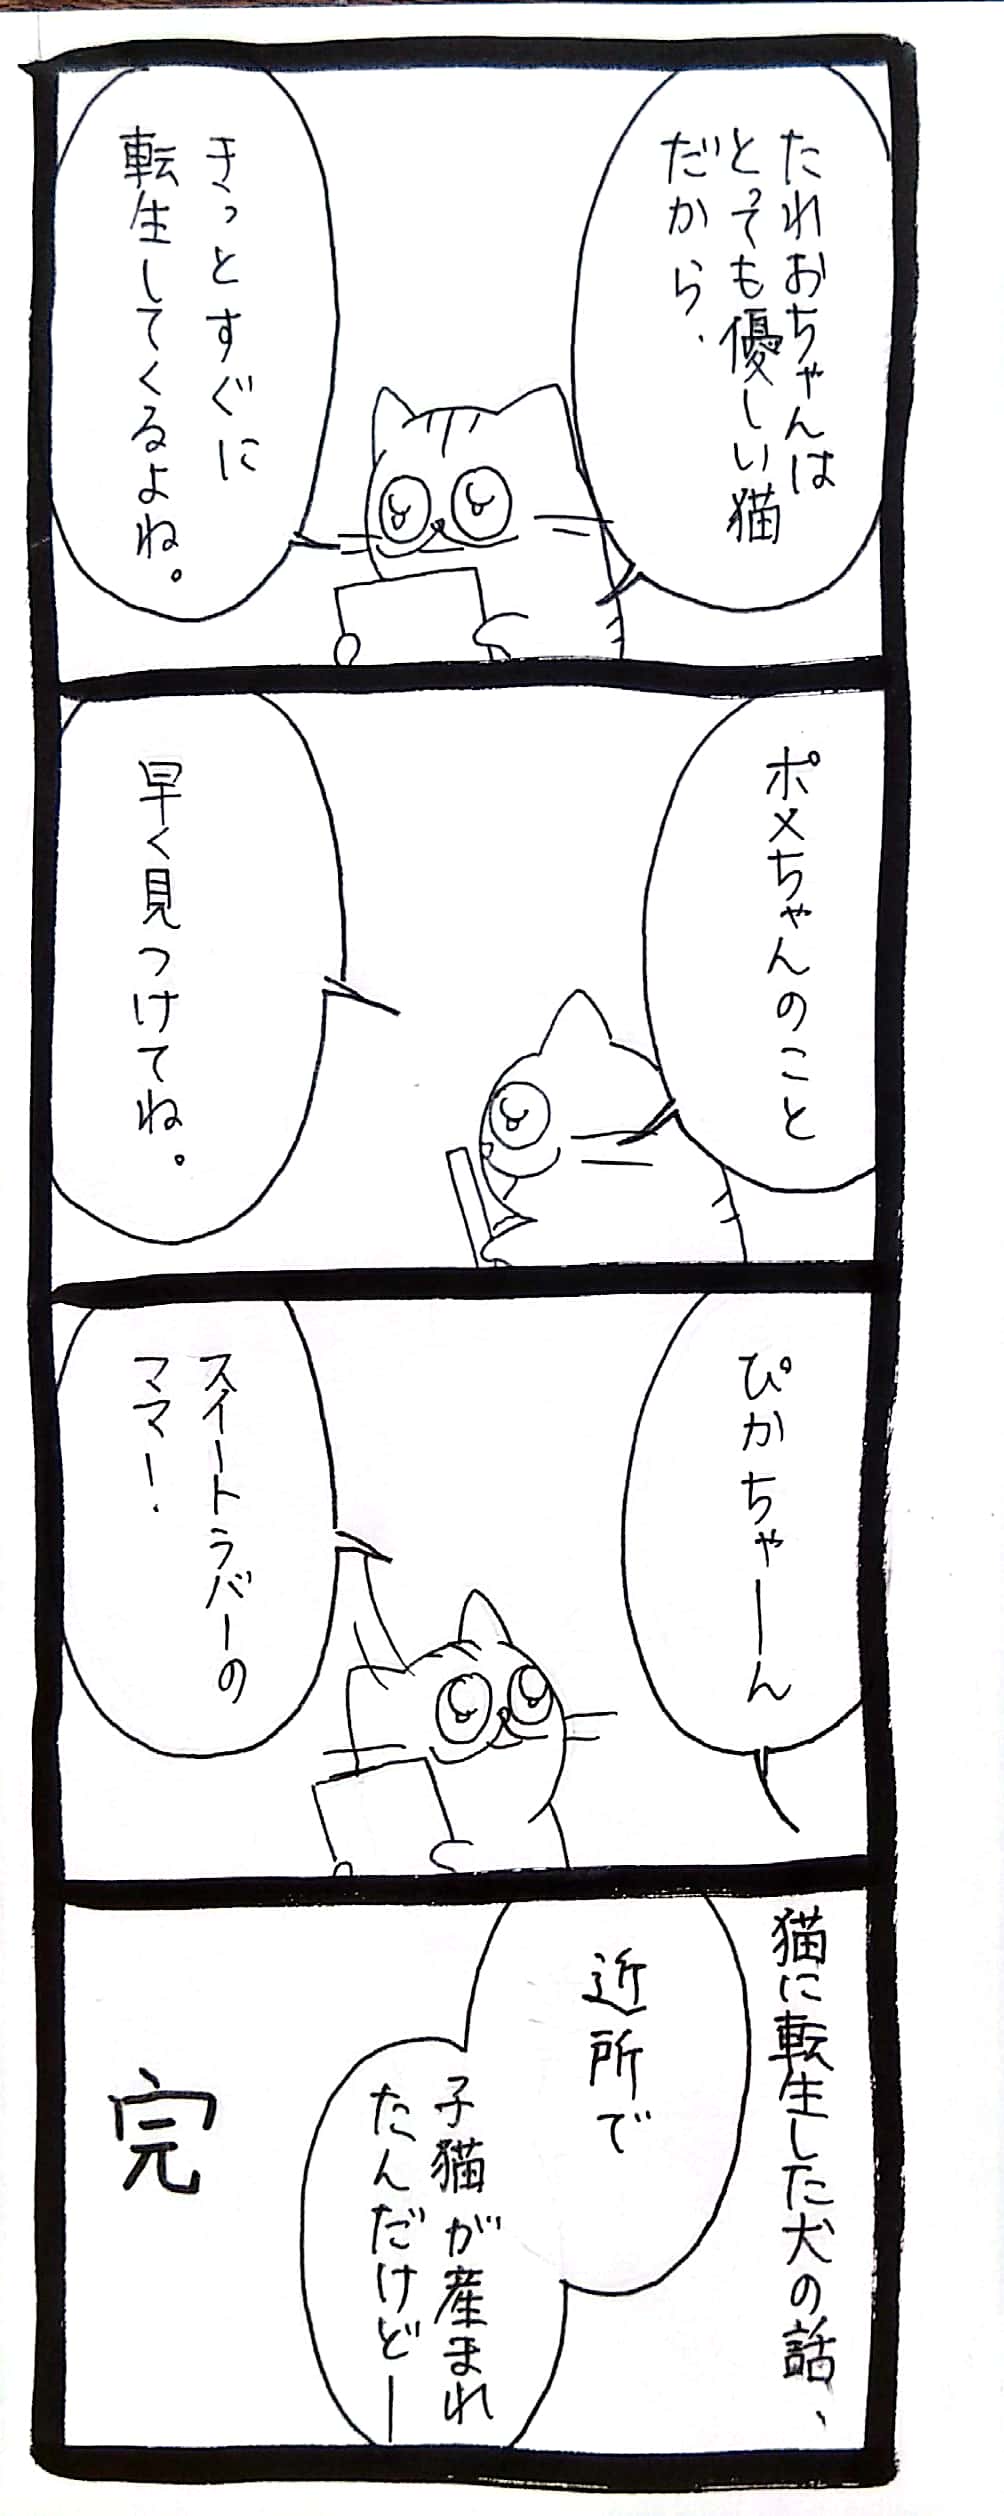 たれおちゃんは
とっても優しい猫
だから、
きっとすぐに
転生してくるよね。
ポメちゃんのこと
早く見つけてね。
ぴかちゃーん
スイートラバーの
ママー!
猫に転生した犬の話、
近所で
子猫が産まれ
たんだけどー
完